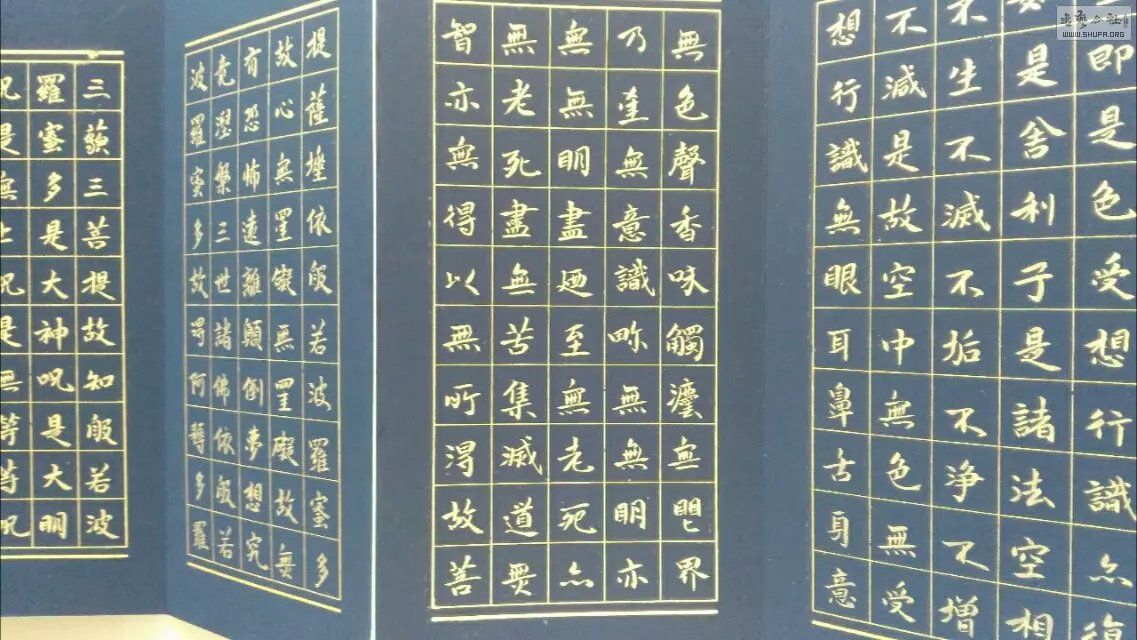 即是色受想行識亦復
是舍利子是諸法空相
不生不滅不垢不淨不增
不減是故空中無色無受
想行識無眼耳鼻舌身意
無色聲香味觸灋無眼界
乃至無意識畍無無明亦
無無明盡廼至無老死亦
無老死盡無苦集滅道無
智亦無得以無所得故菩
提薩埵依般若波羅蜜多
故心無罣礙無罣礙故無
有恐怖遠離顛倒夢想究
竟涅槃三世諸佛依般若
波羅蜜多故得阿耨多羅
三藐三菩提故知般若波
羅蜜多是大神呪是大明
呪是無上呪是無等等呪
書藝公社
WWW.SHUFA.ORG